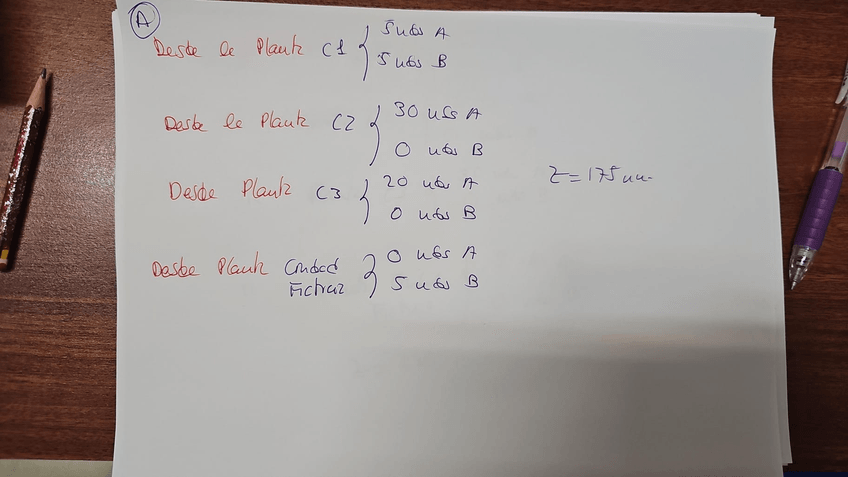 A
Desde la Planta C1 { 5 uds A
5 uds B
Desde la Planta C2 { 30 uds A
0 uds B
Desde Planta C3 { 20 uds A
0 uds B
Z = 175 um.
Desde Planta Ciudad Ficticia { 0 uds A
5 uds B